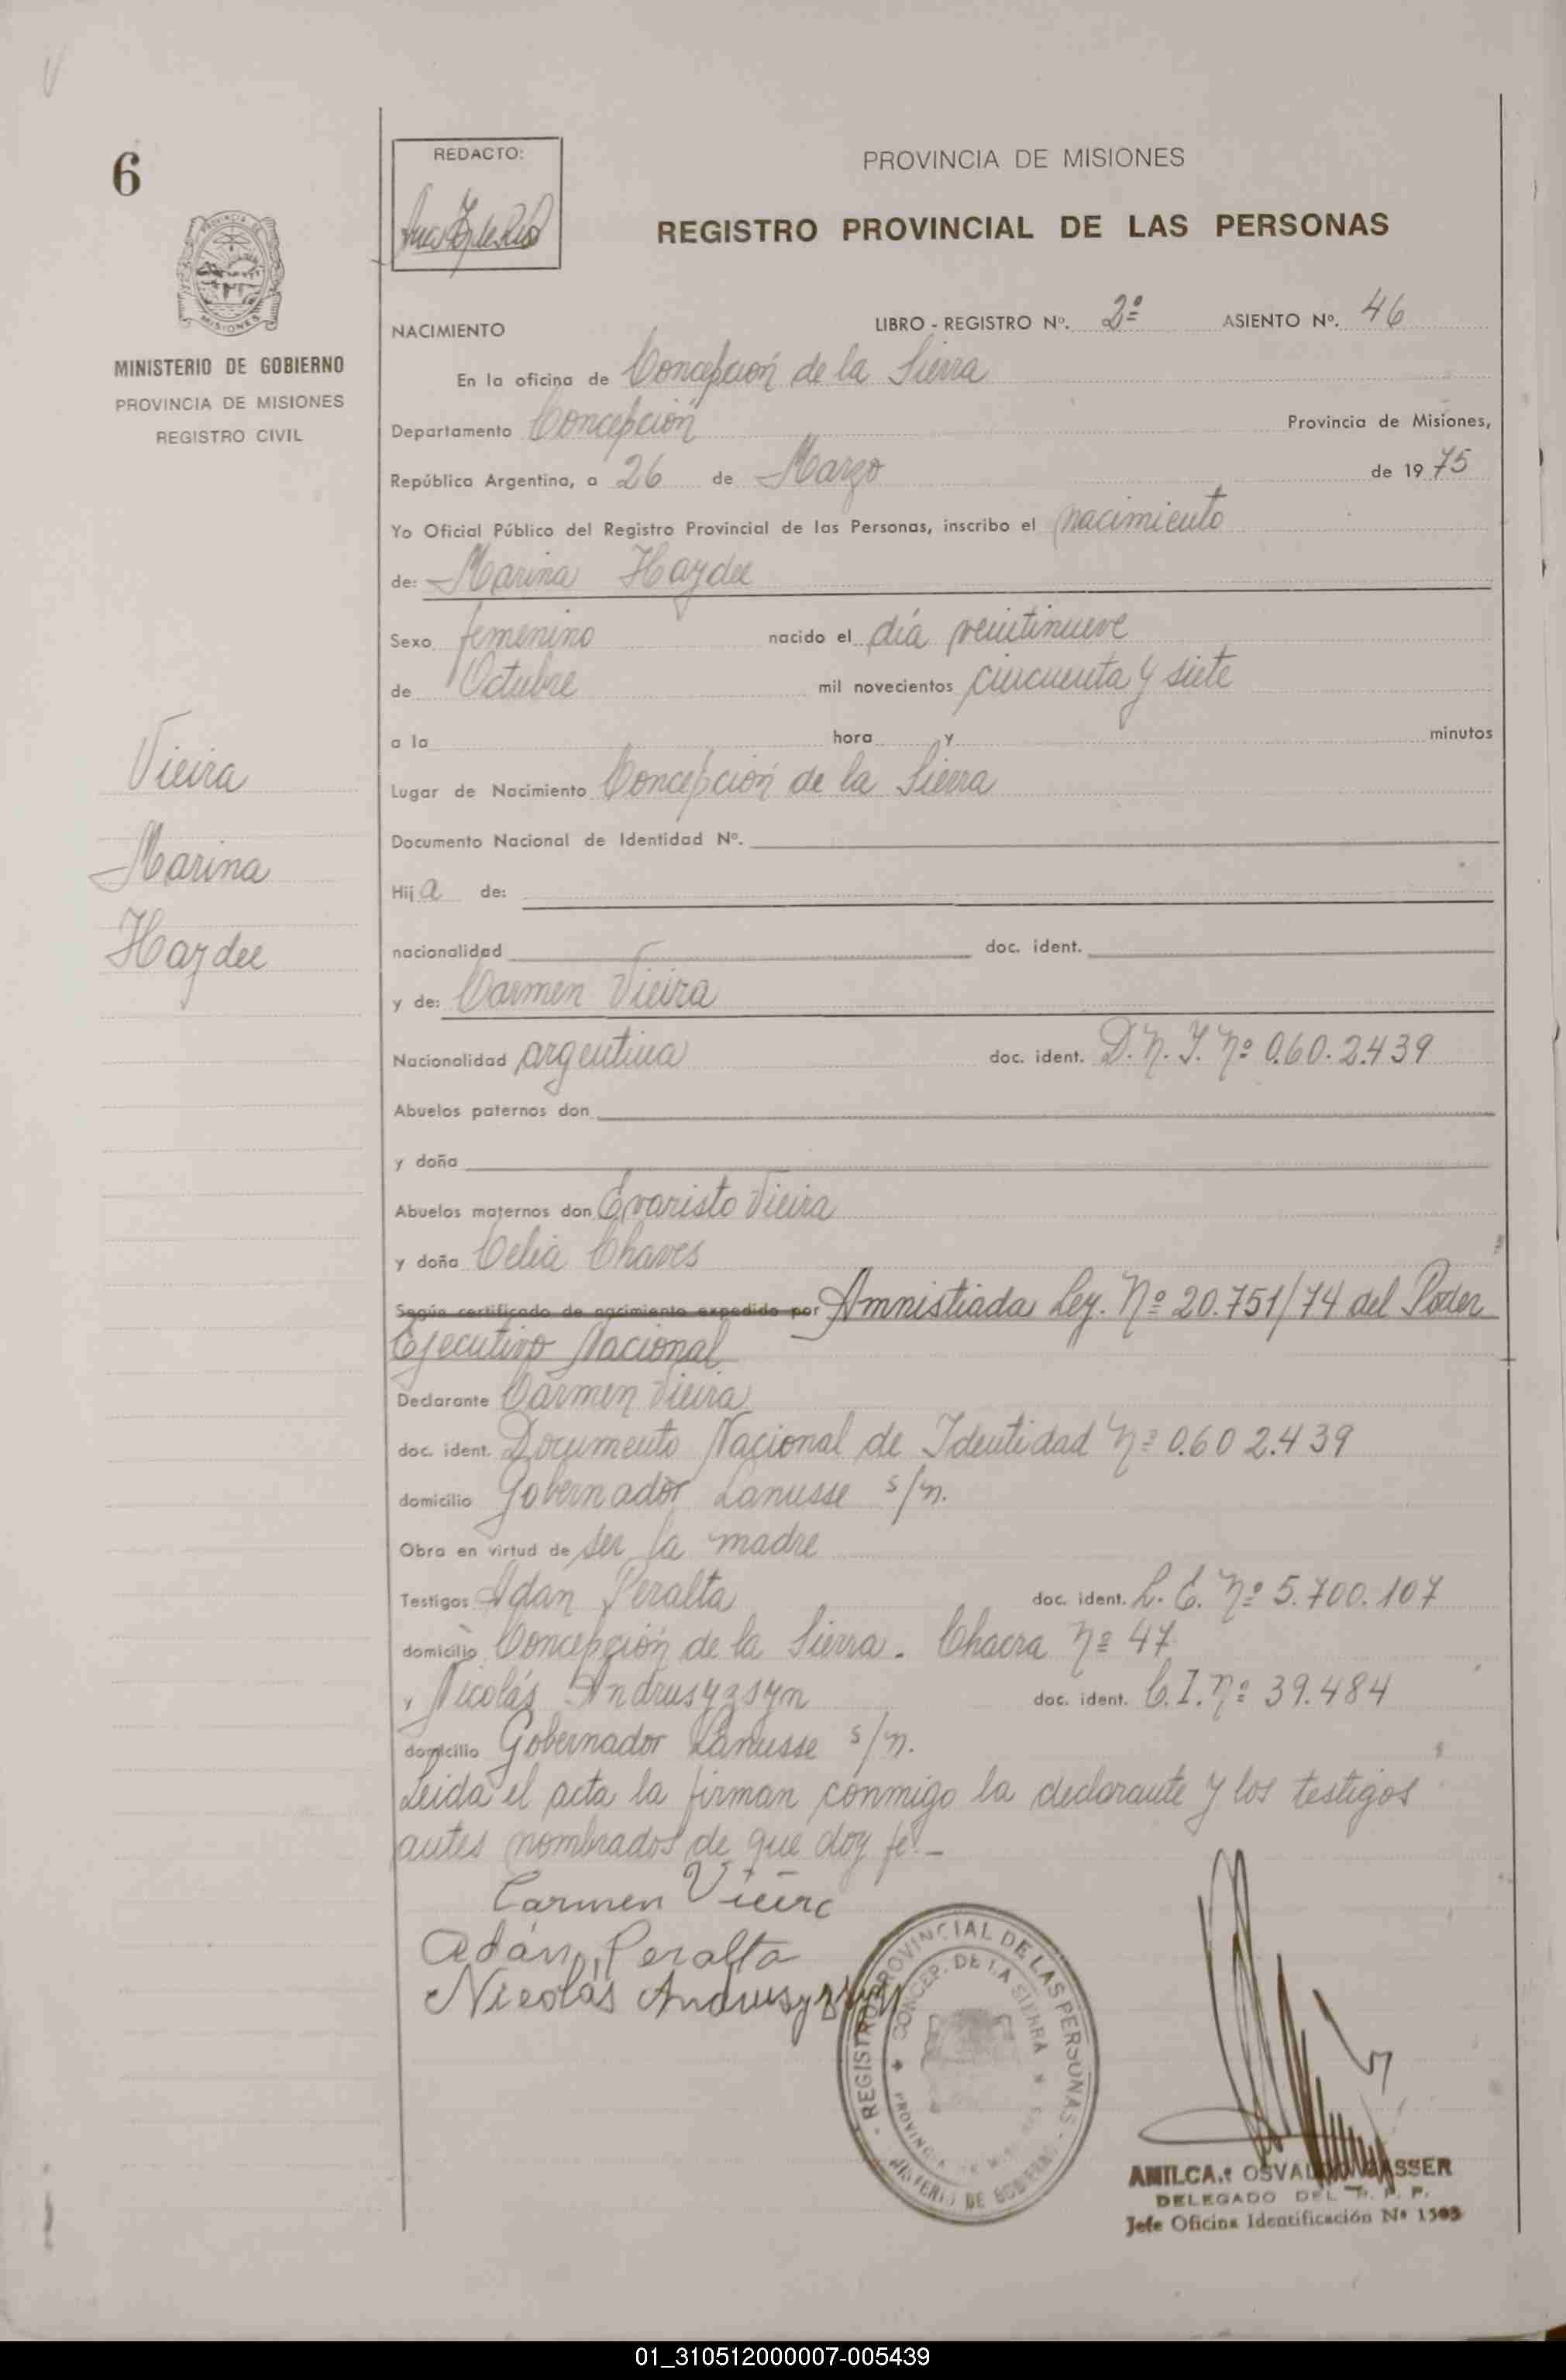 6
REDACTO:
PROVINCIA DE MISIONES
REGISTRO PROVINCIAL DE LAS PERSONAS
PROVINCIA DE
MISIONES
MINISTERIO DE GOBIERNO
PROVINCIA DE MISIONES
REGISTRO CIVIL
NACIMIENTO
LIBRO - REGISTRO Nº. 2º ASIENTO Nº. 46
En la oficina de Concepción de la Sierra
Departamento Concepción Provincia de Misiones,
República Argentina, a 26 de Marzo de 1975
Yo Oficial Público del Registro Provincial de las Personas, inscribo el nacimiento
de: Marina Haydee
Sexo femenino nacido el día veintinueve
de Octubre mil novecientos cincuenta y siete
a la hora y minutos
Lugar de Nacimiento Concepción de la Sierra
Documento Nacional de Identidad Nº.
Hija de:
nacionalidad doc. ident.
y de: Carmen Vieira
Nacionalidad argentina doc. ident. D.N.I. Nº 0.60.2.439
Abuelos paternos don
y doña
Abuelos maternos don Evaristo Vieira
y doña Celia Chaves
Según certificado de nacimiento expedido por Amnistiada Ley. Nº 20.751/74 del Poder
Ejecutivo Nacional
Declarante Carmen Vieira
doc. ident. Documento Nacional de Identidad Nº 0.60 2.439
domicilio Gobernador Lanusse s/n.
Obra en virtud de ser la madre
Testigos Adan Peralta doc. ident. L.E. Nº 5.700.107
domicilio Concepción de la Sierra. Chacra Nº 47
y Nicolás Andrusyzsyn doc. ident. C.I. Nº 39.484
domicilio Gobernador Lanusse s/n.
Leida el acta la firman conmigo la declarante y los testigos
antes nombrados de que doy fe.-
Vieira
Marina
Haydee
Carmen Vieira
Adán Peralta
Nicolás
REGISTRO PROVINCIAL DE LAS PERSONAS
CONCEP. DE LA SIERRA
MINISTERIO DE GOBIERNO
AMILCAR OSVALDO
DELEGADO DEL R. P. P.
Jefe Oficina Identificación Nº
01_310512000007-005439